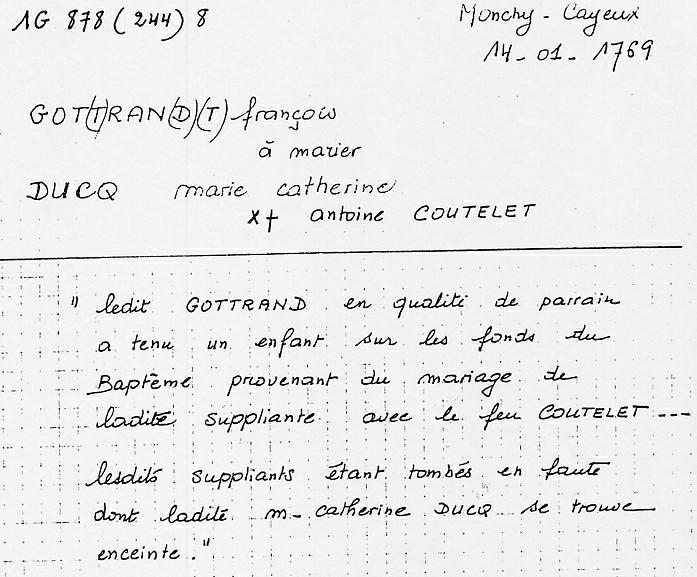 1G 878 (244) 8
Monchy - Cayeux
14 - 01 - 1769
GOT(T)RAN(D)(T) françois
à marier
DUCQ marie catherine
x† antoine COUTELET
" ledit GOTTRAND en qualité de parrain
a tenu un enfant sur les fonds du
Baptême provenant du mariage de
ladite suppliante avec le feu COUTELET ---
lesdits suppliants étant tombés en faute
dont ladite m - catherine DUCQ se trouve
enceinte . "